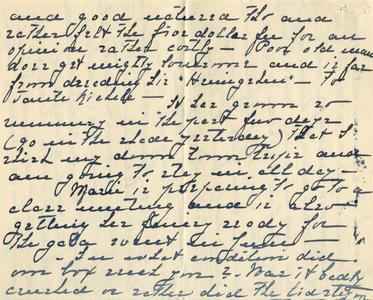 and good natured tho and
rather felt the five dollar fee for an
opinion rather costly — Poor old man
does get mighty lonesome and is far
from deciding his "Hungreden" — To
Janete Richelle — It has grown so
summery in the past few days
(90 in the shade yesterday) that I
shirk my down town trips and
am going to stay in all day —
Marie is preparing to go to a
class meeting and is also
getting her finery ready for
the gala event in June —
In what condition did
our box reach you? Was it badly
crushed or rather did the lid stay on